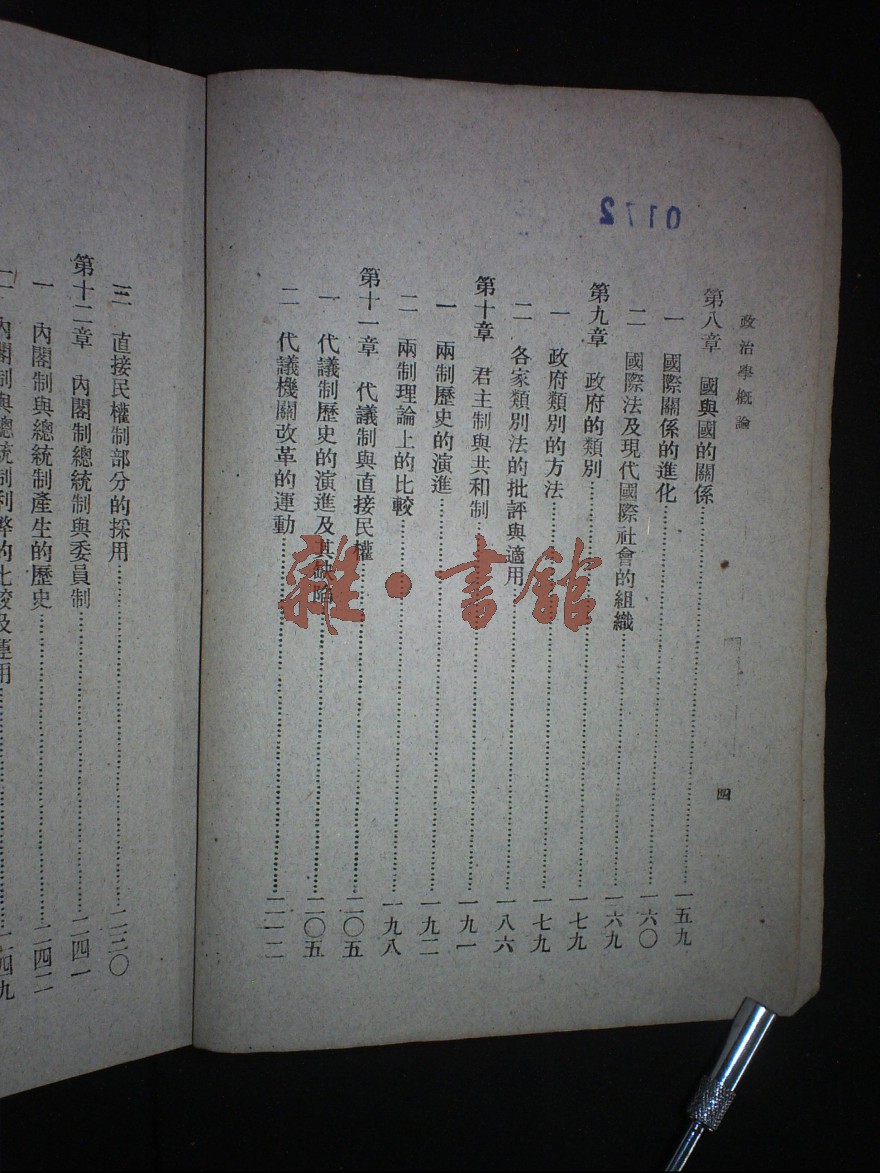 0172
政治學概論
四
第八章 國與國的關係……一五九
一 國際關係的進化……一六〇
二 國際法及現代國際社會的組織……一六九
第九章 政府的類別……一七九
一 政府類別的方法……一七九
二 各家類別法的批評與適用……一八六
第十章 君主制與共和制……一九一
一 兩制歷史的演進……一九二
二 兩制理論上的比較……一九八
第十一章 代議制與直接民權……二〇五
一 代議制歷史的演進及其缺陷……二〇五
二 代議機關改革的運動……二一二
三 直接民權制部分的採用……二二〇
第十二章 內閣制總統制與委員制……二四一
一 內閣制與總統制產生的歷史……二四二
二 內閣制與總統制利弊的比較及運用……二四九
雜·書館